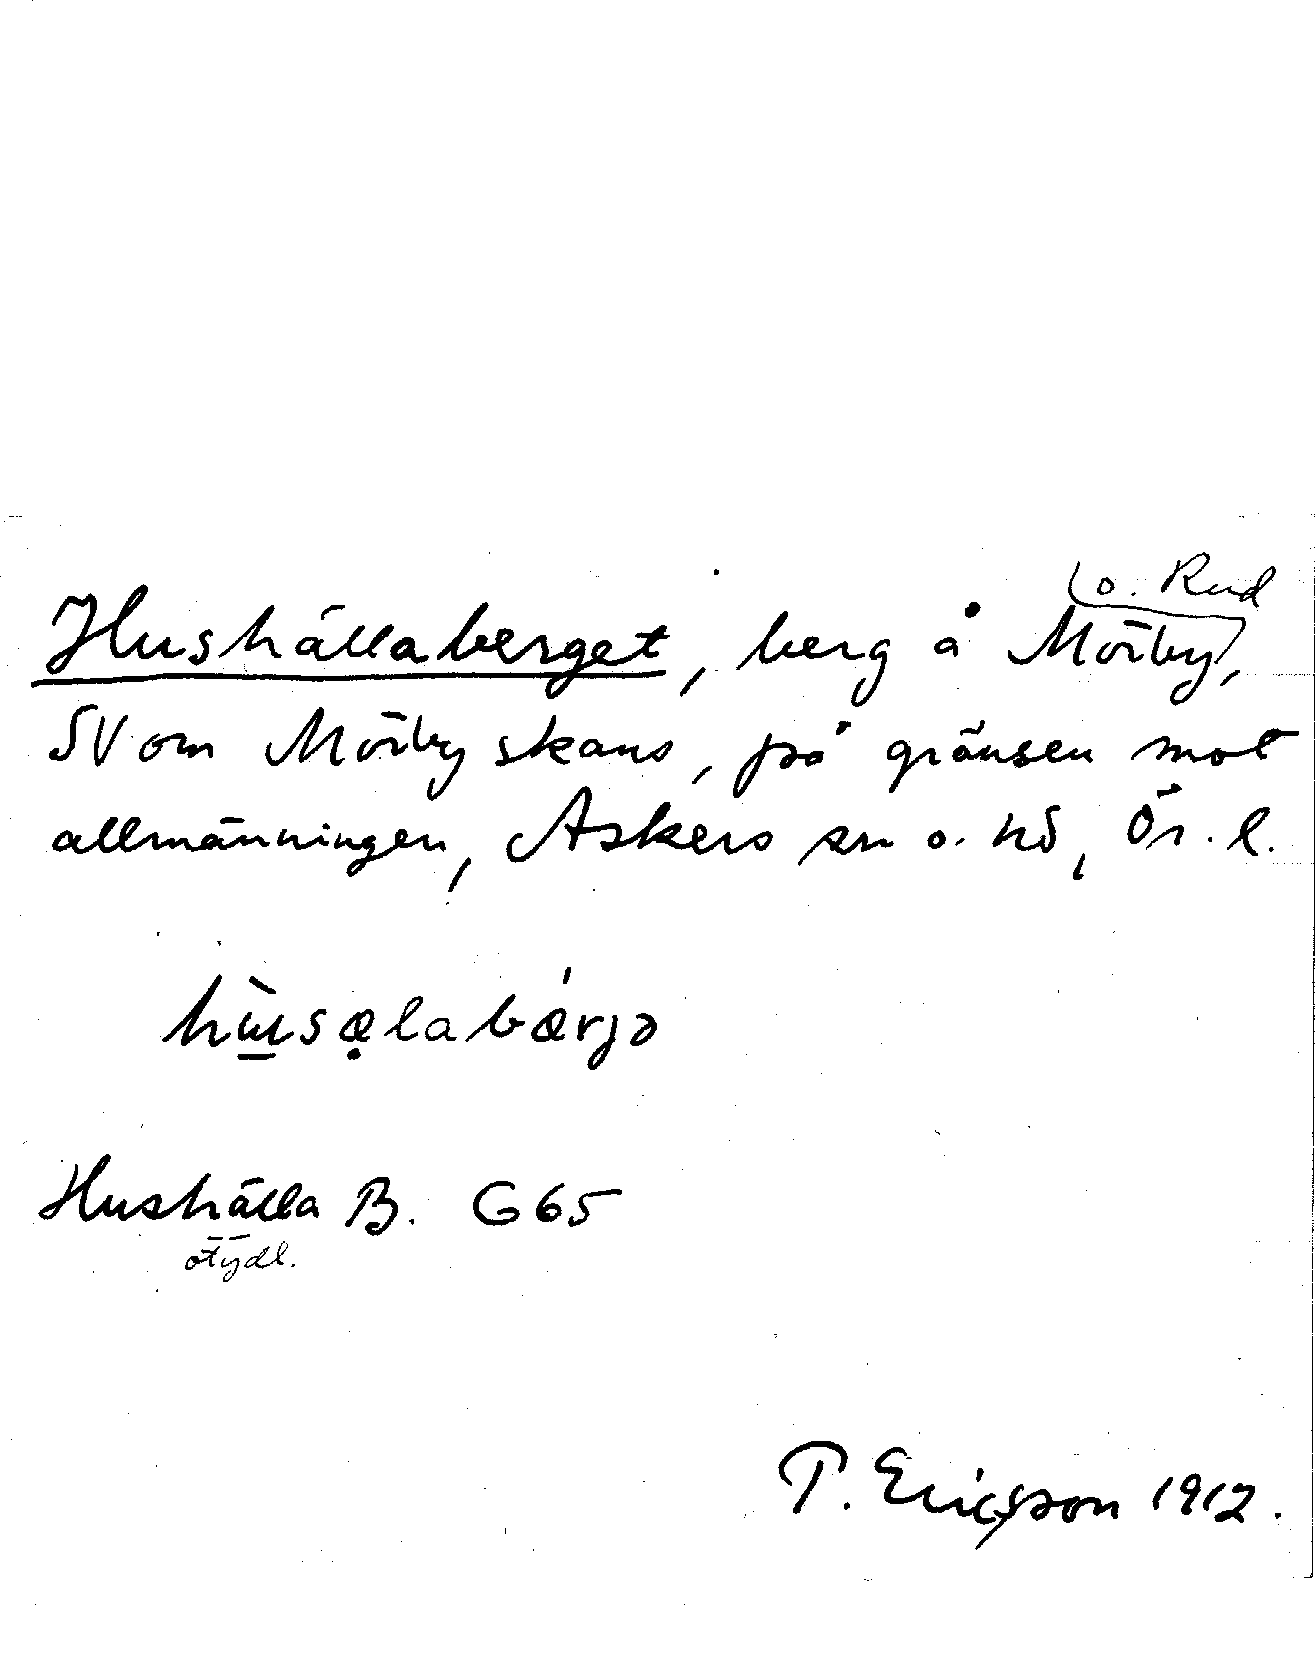 (o. Rud
Hushällaberget, berg å Mörby),
SV om Mörby skans, på gränsen mot
allmänningen, Askers sn o. hd, Ör. l.
hùsæ̣labǽrjə
Hushälla B. G65
otydl.
T. Ericsson 1912.